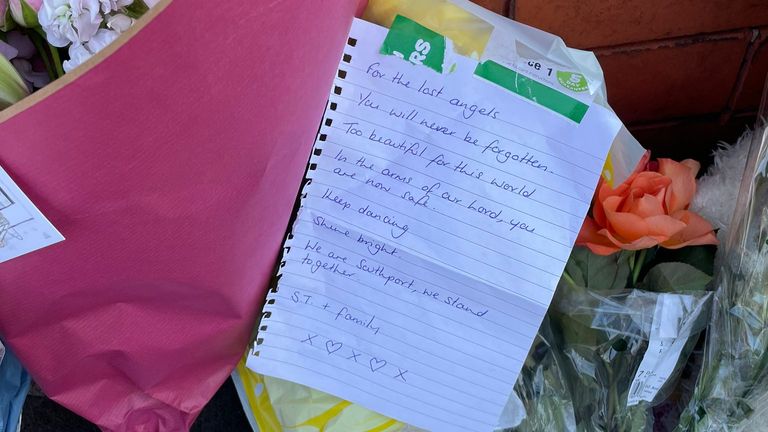 RS
ce 1
For the lost angels
You will never be forgotten.
Too beautiful for this world
In the arms of our Lord, you
are now safe.
Keep dancing
Shine bright.
We are Southport, we stand
together
S.T. + family
X ♡ X ♡ X